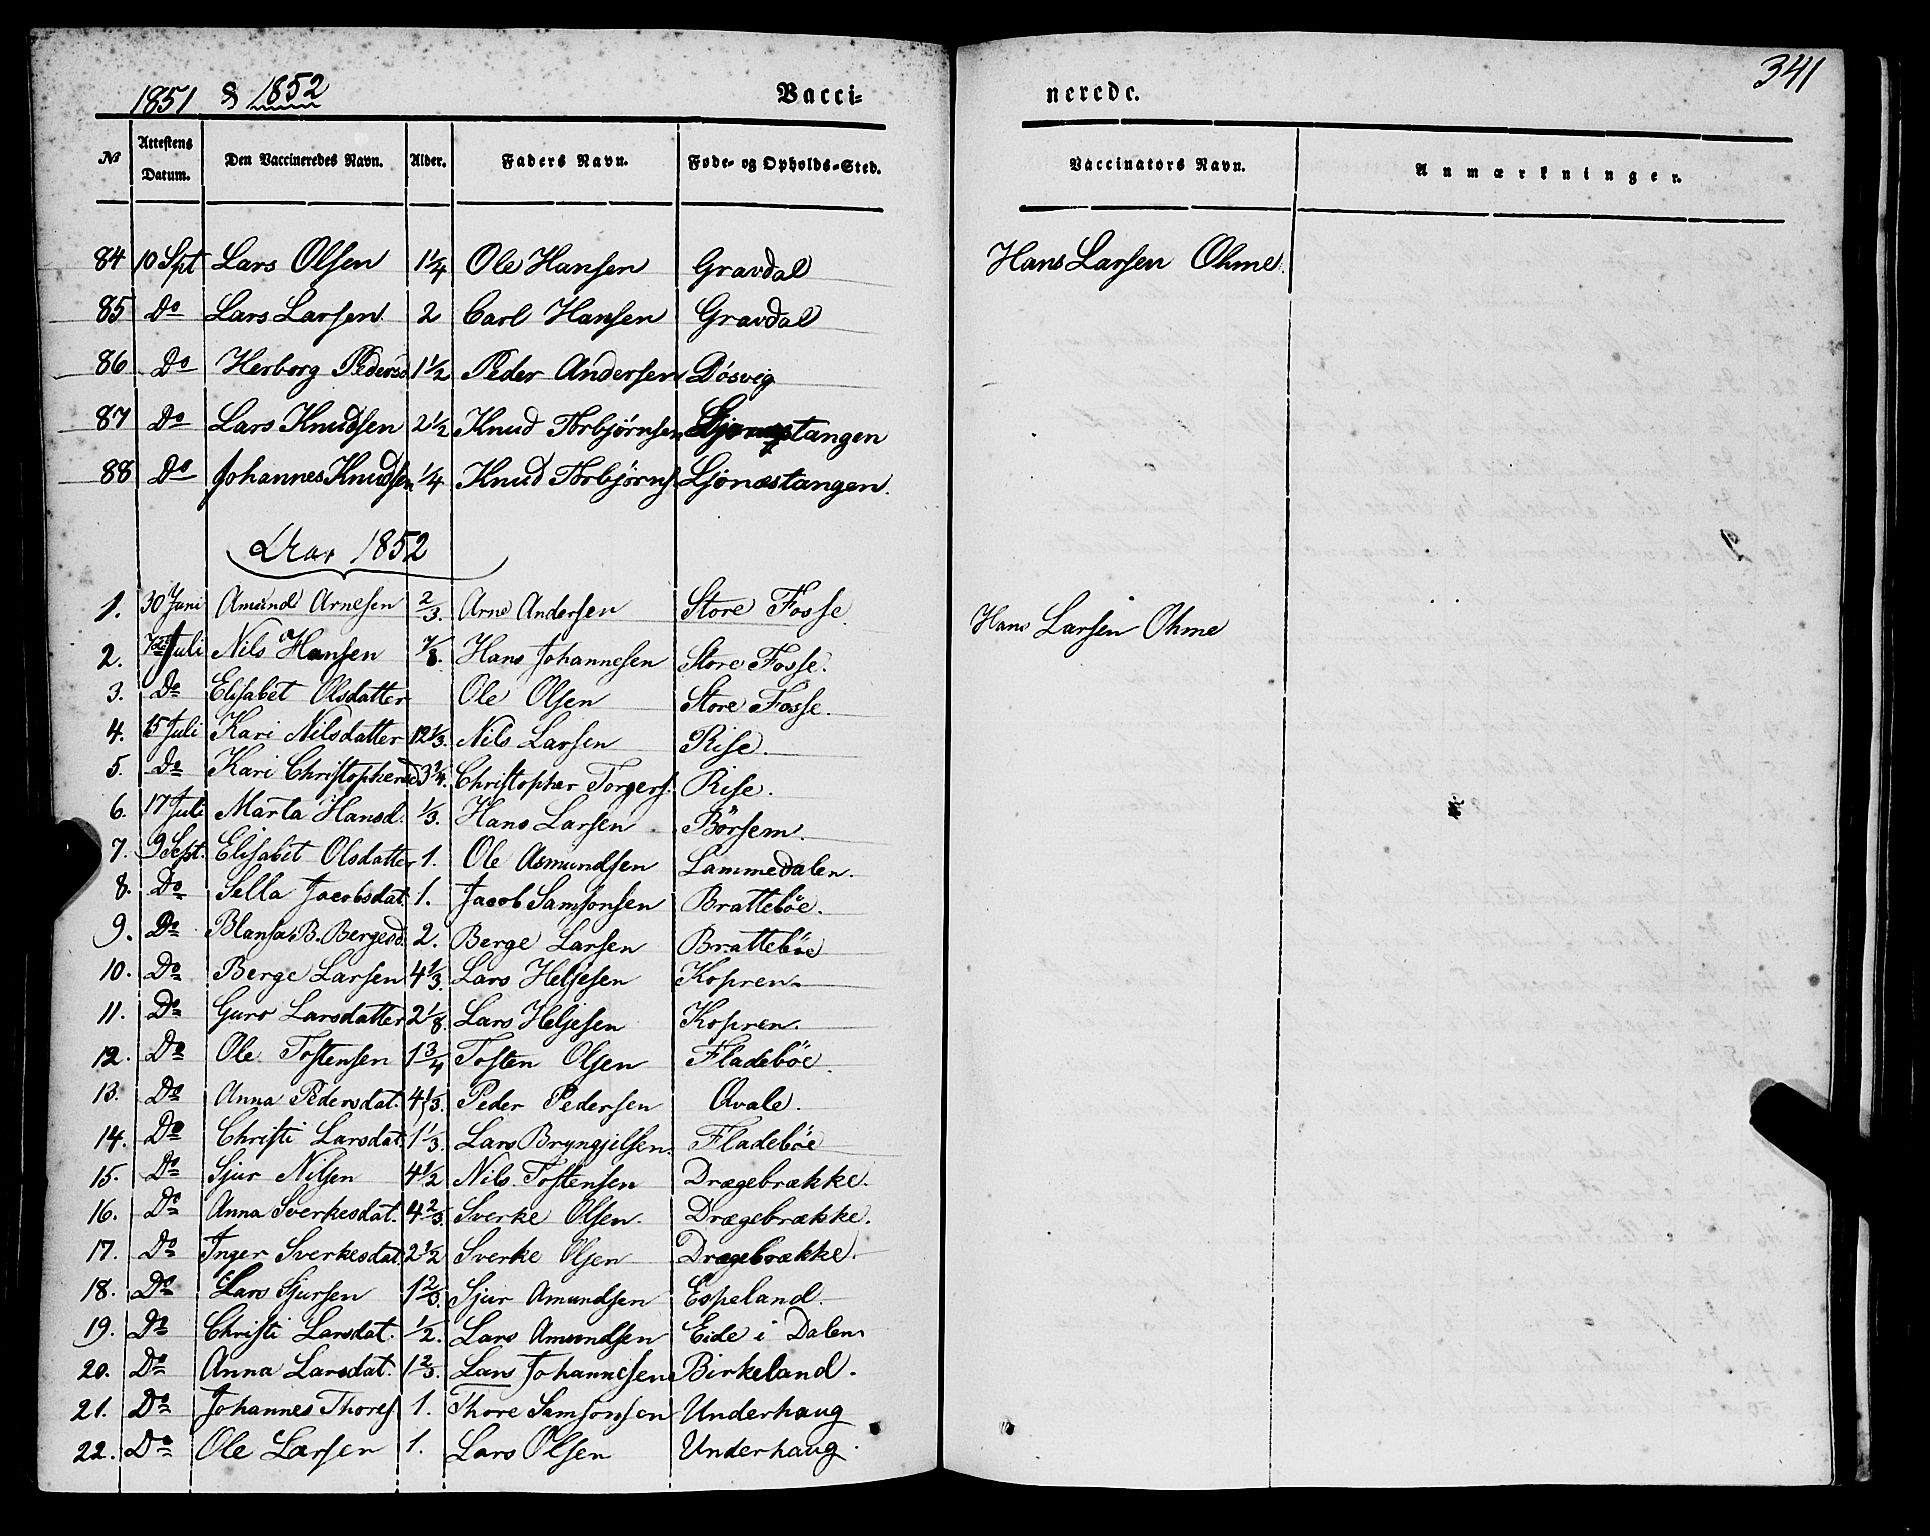 341
1851 & 1852 Vacci= nerede.
№ Attestens Datum. Den Vaccineredes Navn. Alder. Faders Navn. Føde- og Opholds-Sted. Vaccinators Navn. Anmærkninger.
84 10 Spt Lars Olsen 1 1/4 Ole Hansen Gravdal Hans Larsen Ohme.
85 Do Lars Larsen 2 Carl Hansen Gravdal
86 Do Herborg Pedersd 1 1/2 Peder Andersen Døsvig
87 Do Lars Knudsen 2 1/2 Knud Torbjørnsen Ljonæstangen
88 Do Johannes Knudsen 1/4 Knud Torbjørns. Ljonæstangen.
Aar 1852
1. 30 Juni Amund Arnesen 2/3. Arne Andersen Store Fosse. Hans Larsen Ohme
2. Juli Nils Hansen 7/8. Hans Johannesen Store Fosse.
3. Do Elisabet Olsdatter Ole Olsen Store Fosse.
4. 15 Juli Kari Nilsdatter 12 1/3. Nils Larsen Rise.
5. Do Kari Christophersd 3 1/4. Christopher Torgers. Rise.
6. 17 Juli Marta Hansd. 1/3. Hans Larsen Börsem.
7. 9 Sept. Elisabet Olsdatter 1. Ole Asmundsen Lammedalen.
8. Do Sella Jacobsdat. 1. Jacob Samsonsen Bratteböe.
9. Do B. Bergesd. 2. Berge Larsen Bratteböe
10. Do Berge Larsen 4 1/3. Lars Heljesen Kopren.
11. Do Guro Larsdatter 2 1/8. Lars Heljesen Kopren.
12. Do Ole Tostensen 1 3/4 Tosten Olsen Fladeböe.
13. Do Anna Pedersdat. 4 1/3. Peder Pedersen Qvale.
14. Do Christi Larsdat. 1 1/3. Lars Bryngjelsen. Fladeböe
15. Do Sjur Nilsen 4 1/2 Nils Tostensen Drægebrække.
16. Do Anna Sverkesdat. 4 2/3. Sverke Olsen. Drægebrække.
17. Do Inger Sverkesdat. 2 1/2 Sverke Olsen Drægebrække.
18. Do Lars Sjursen 1 2/3. Sjur Amundsen Espeland.
19. Do Christi Larsdat. 1/2. Lars Amundsen Eide i Dalen
20. Do Anna Larsdat. 1 2/3. Lars Johannesen Birkeland.
21. Do Johannes Thores. 1. Thore Samsonsen Underhaug
22. Do Ole Larsen 1. Lars Olsen Underhaug.